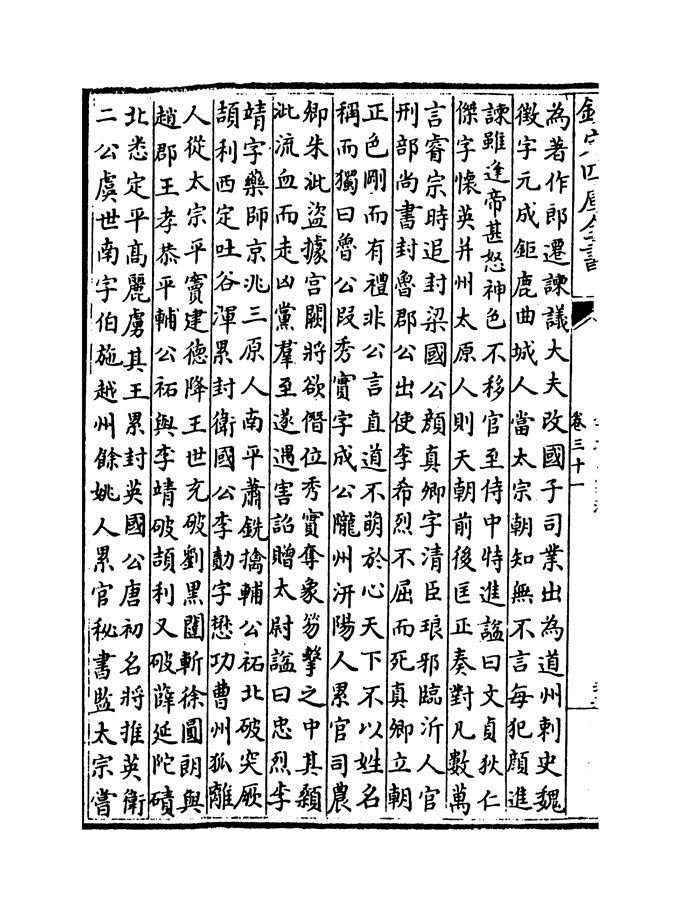 欽定四庫全書
卷三十一
為著作郎遷諫議大夫改國子司業出為道州刺史魏
徵字元成鉅鹿曲城人當太宗朝知無不言每犯顔進
諫雖逢帝甚怒神色不移官至侍中特進諡曰文貞狄仁
傑字懷英并州太原人則天朝前後匡正奏對凡數萬
言睿宗時追封梁國公顔真卿字清臣琅邪臨沂人官
刑部尚書封魯郡公出使李希烈不屈而死真卿立朝
正色剛而有禮非公言直道不萌於心天下不以姓名
稱而獨曰魯公段秀實字成公隴州汧陽人累官司農
卿朱泚盜據宫闕將欲僭位秀實奪象笏擊之中其顙
泚流血而走凶黨羣至遂遇害詔贈太尉諡曰忠烈李
靖字藥師京兆三原人南平蕭銑擒輔公祏北破突厥
頡利西定吐谷渾累封衛國公李勣字懋功曹州狐離
人從太宗平竇建德降王世充破劉黒闥斬徐圓朗與
趙郡王孝恭平輔公祏與李靖破頡利又破薛延陀磧
北悉定平髙麗虜其王累封英國公唐初名將推英衛
二公虞世南字伯施越州餘姚人累官秘書監太宗嘗